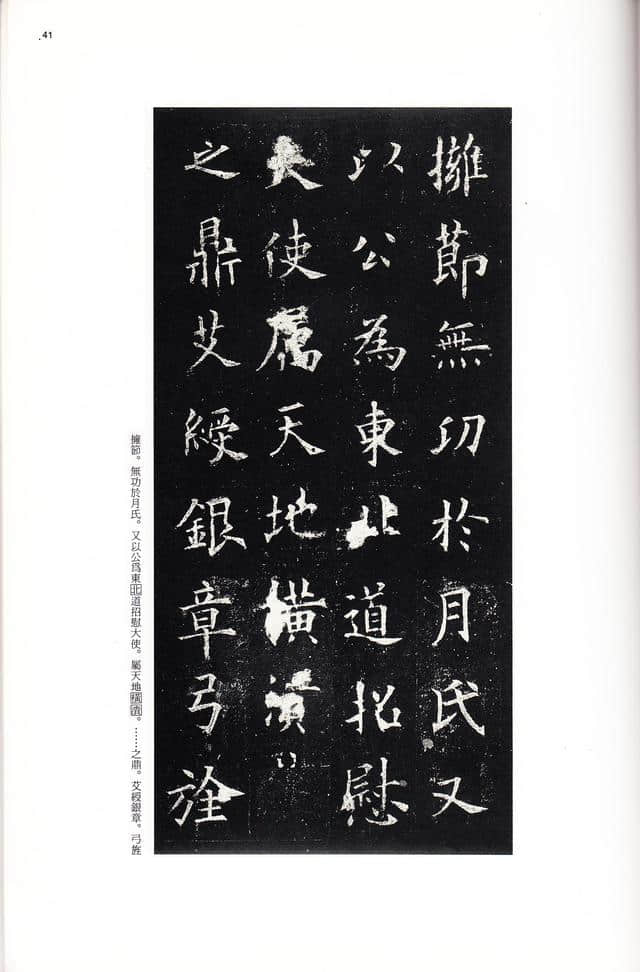 .41
擁節無功於月氏又
以公為東北道招慰
大使属天地橫潰
之鼎艾綬銀章弓旌
擁節。無功於月氏。又以公爲東北道招慰大使。屬天地橫潰。……之鼎。艾綬銀章。弓旌